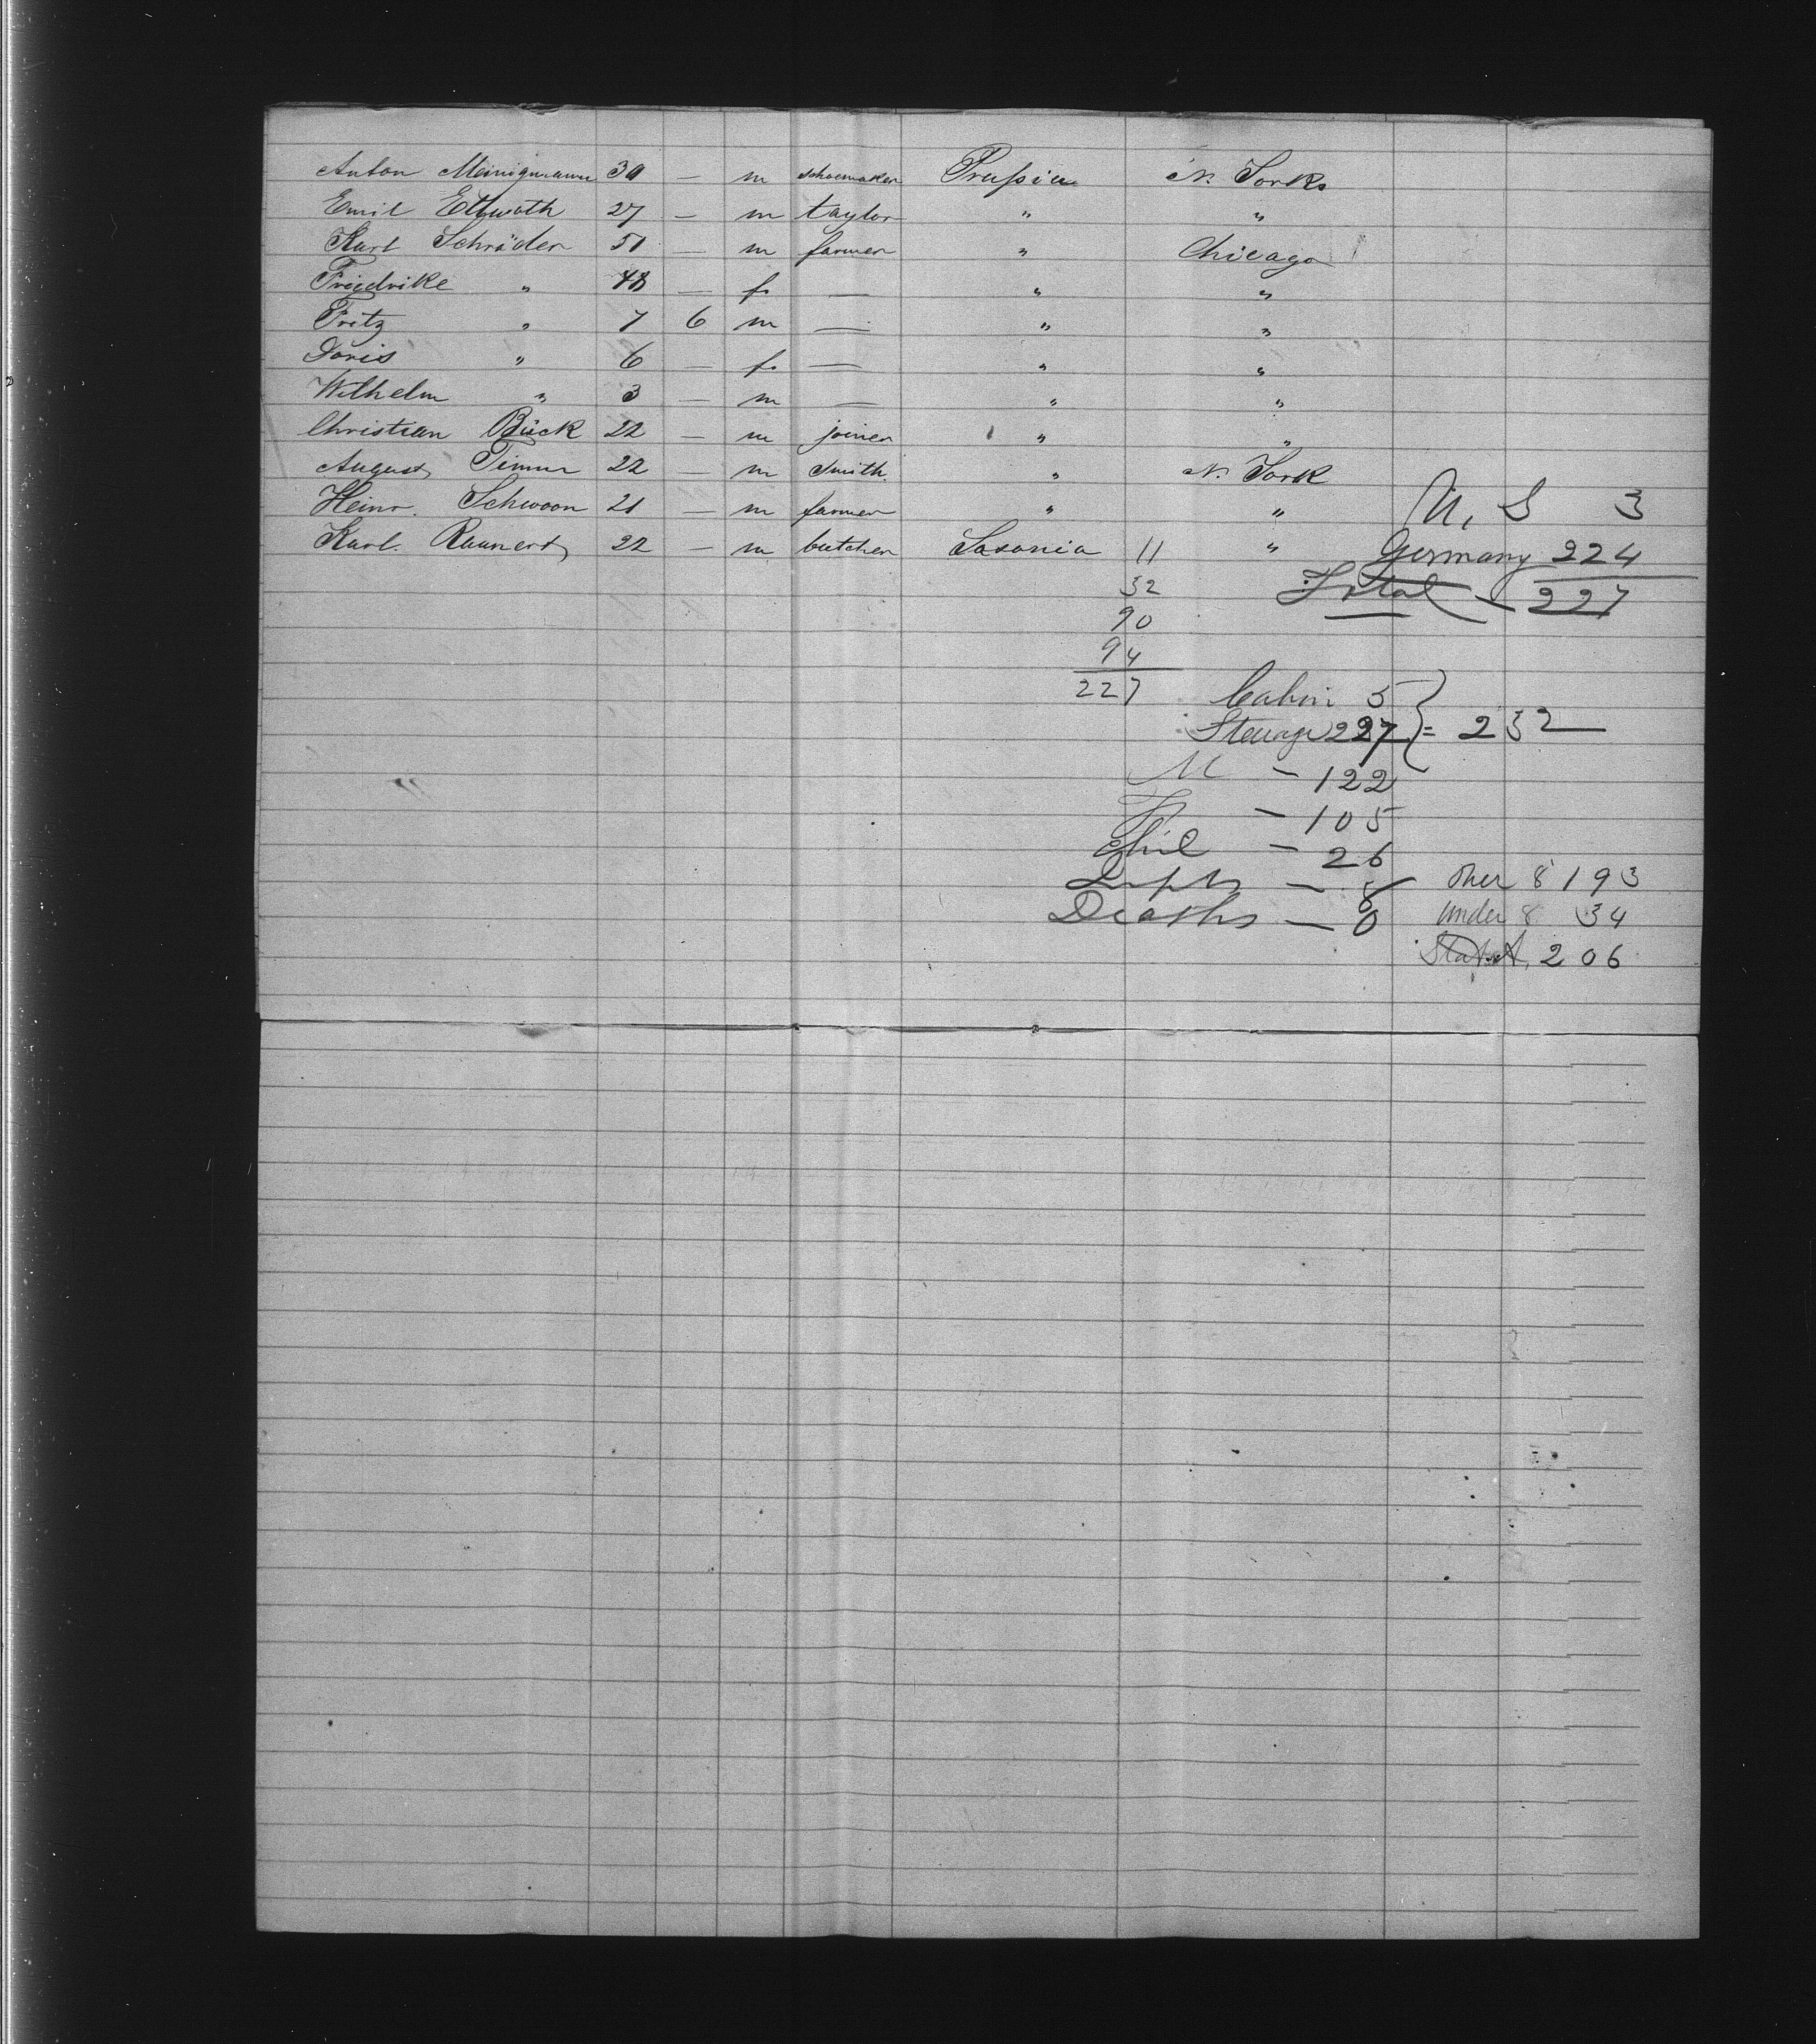 Anton Meinigmann 30 — m schoemaker Prussia N. York
Emil Ettwath 27 — m taylor " "
Karl Schröder 51 — m farmer " Chicago
Friedrike " 48 — f. — " "
Fritz " 7 6 m — " "
Doris " 6 — f. — " "
Wilhelm " 3 — m — " "
Christian Bück 22 — m joiner " "
August Timm 22 — m Smith. " N. York
Heinr. Schwoon 21 — m farmer " "
Karl. 22 — m butcher Saxonia 11 "
U. S 3
Germany 224
Total — 227
32
90
94
227
Cabin 5
Steerage 227 } = 232
M — 122
F — 105
Chil — 26
Infts — 8
Deaths — 0
over 8 193
under 8 34
Stat. 206